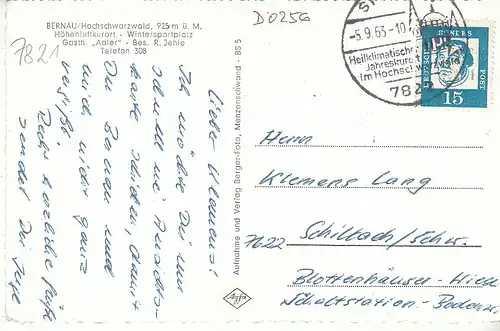 BERNAU/Hochschwarzwald, 925 m ü. M.
Höhenluftkurort - Wintersportplatz
Gasth. „Adler" - Bes. R. Jehle
Telefon 308
7821
D'0256
-5.9.63-10
Heilklimatisch
Jahreskur
im Hochsch
782
DEUTSCHE BUNDESPOST
15
Lieber Klemens!
Ich möchte Dir nur
schnell eine Ansichts-
karte schicken, damit
Du Bernau und
mich nicht ganz
vergißt.
Recht herzliche Grüße
sendet Dir
Aufnahme und Verlag Berger-Foto, Menzenschwand - BS 5
Agfa
Herrn
Klemens Lang
7622 Schiltach/Schw.
Blottenhäuser-Hieb
Schaltstation-Baden